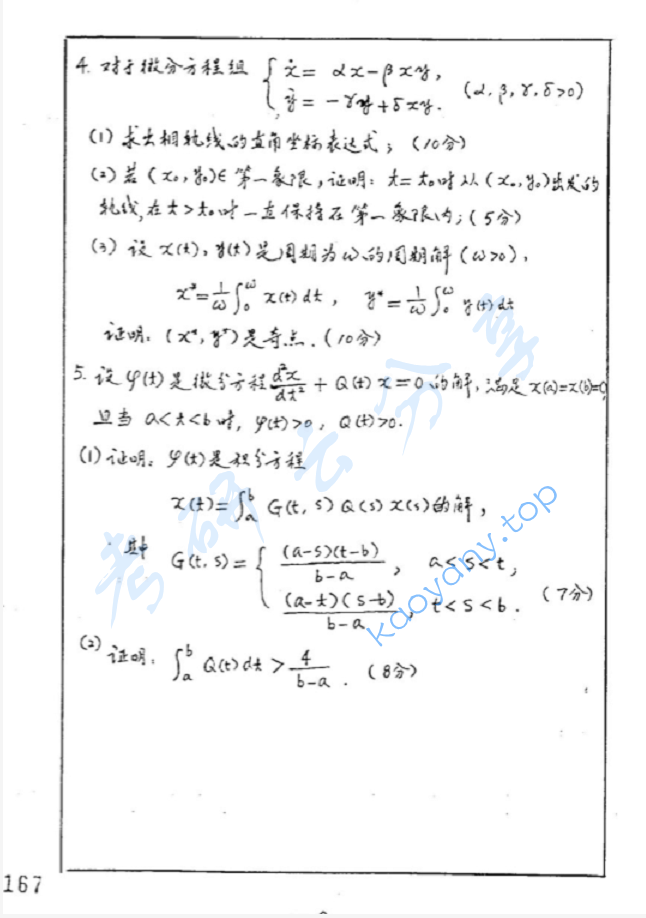 4. 对于微分方程组 { ẋ = αx − βxy,
ẏ = −γy + δxy. (α, β, γ, δ > 0)
(1) 求出相轨线的直角坐标表达式; (10分)
(2) 若 (x₀, y₀) ∈ 第一象限, 证明: t = t₀ 时从 (x₀, y₀) 出发的
轨线, 在 t > t₀ 时一直保持在第一象限内; (5分)
(3) 设 x(t), y(t) 是周期为 ω 的周期解 (ω>0),
x* = 1/ω ∫₀^ω x(t) dt, y* = 1/ω ∫₀^ω y(t) dt
证明: (x*, y*) 是奇点. (10分)
5. 设 φ(t) 是微分方程 d²x/dt² + Q(t) x = 0 的解, 满足 x(a)=x(b)=0,
且当 a < t < b 时, φ(t) > 0, Q(t) > 0.
(1) 证明: φ(t) 是积分方程
x(t) = ∫_a^b G(t, s) Q(s) x(s) 的解,
其中 G(t, s) = { (a−s)(t−b)/(b−a), a < s < t,
(a−t)(s−b)/(b−a), t < s < b. (7分)
(2) 证明: ∫_a^b Q(t) dt > 4/(b−a). (8分)
考研云分享
kaoyany.top
167